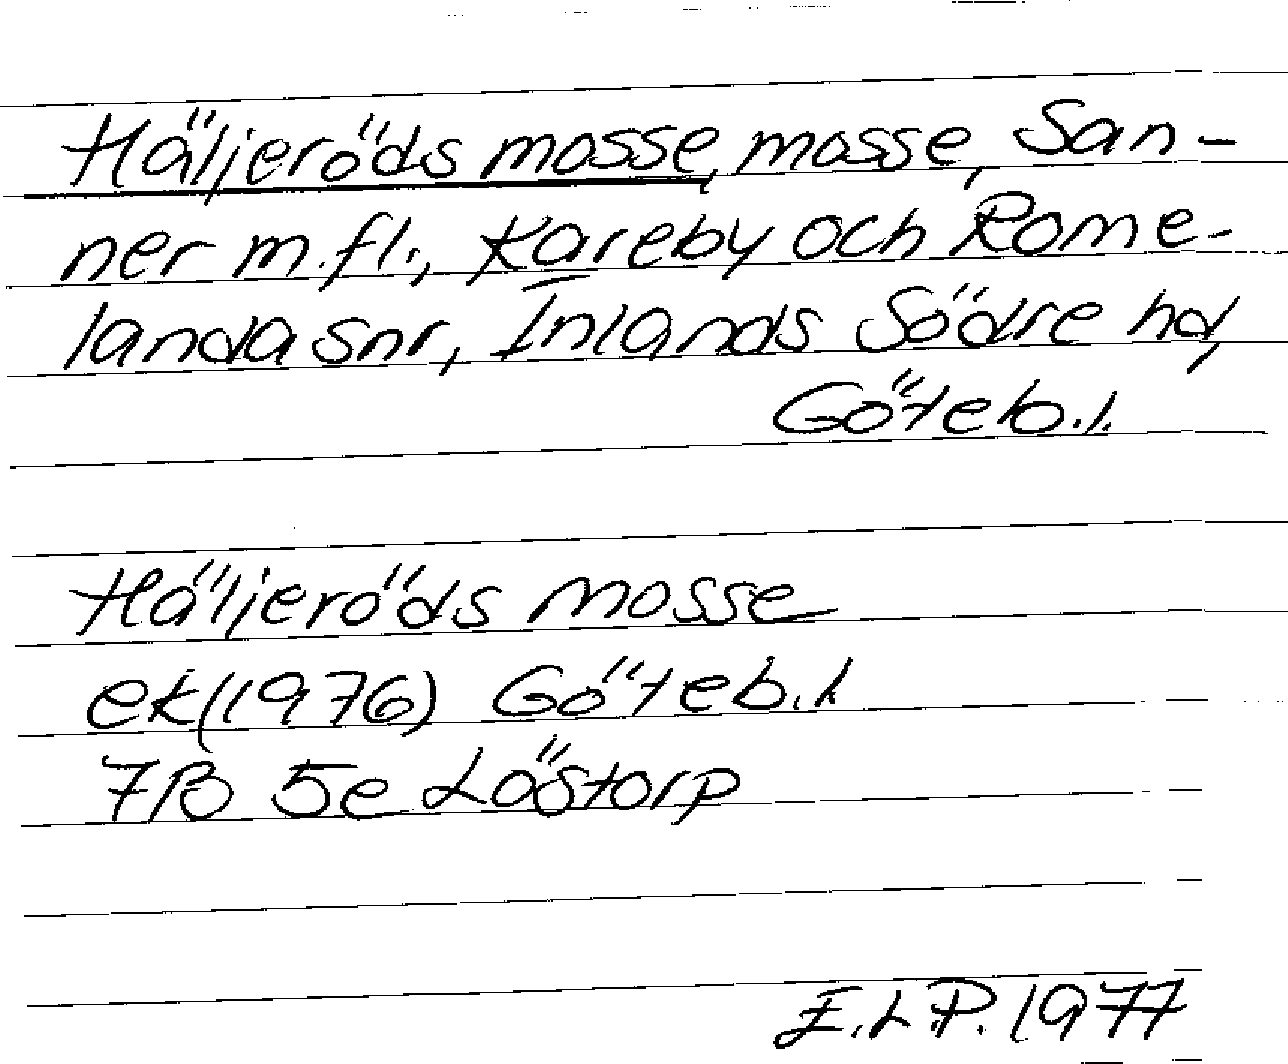 Häljeröds mosse, mosse, San-
ner m.fl., Kareby och Rome-
landa snr, Inlands Södre hd,
Göteb.l.
Häljeröds mosse
ek(1976) Göteb.l
7B 5e Löstorp
E.L.P. 1977